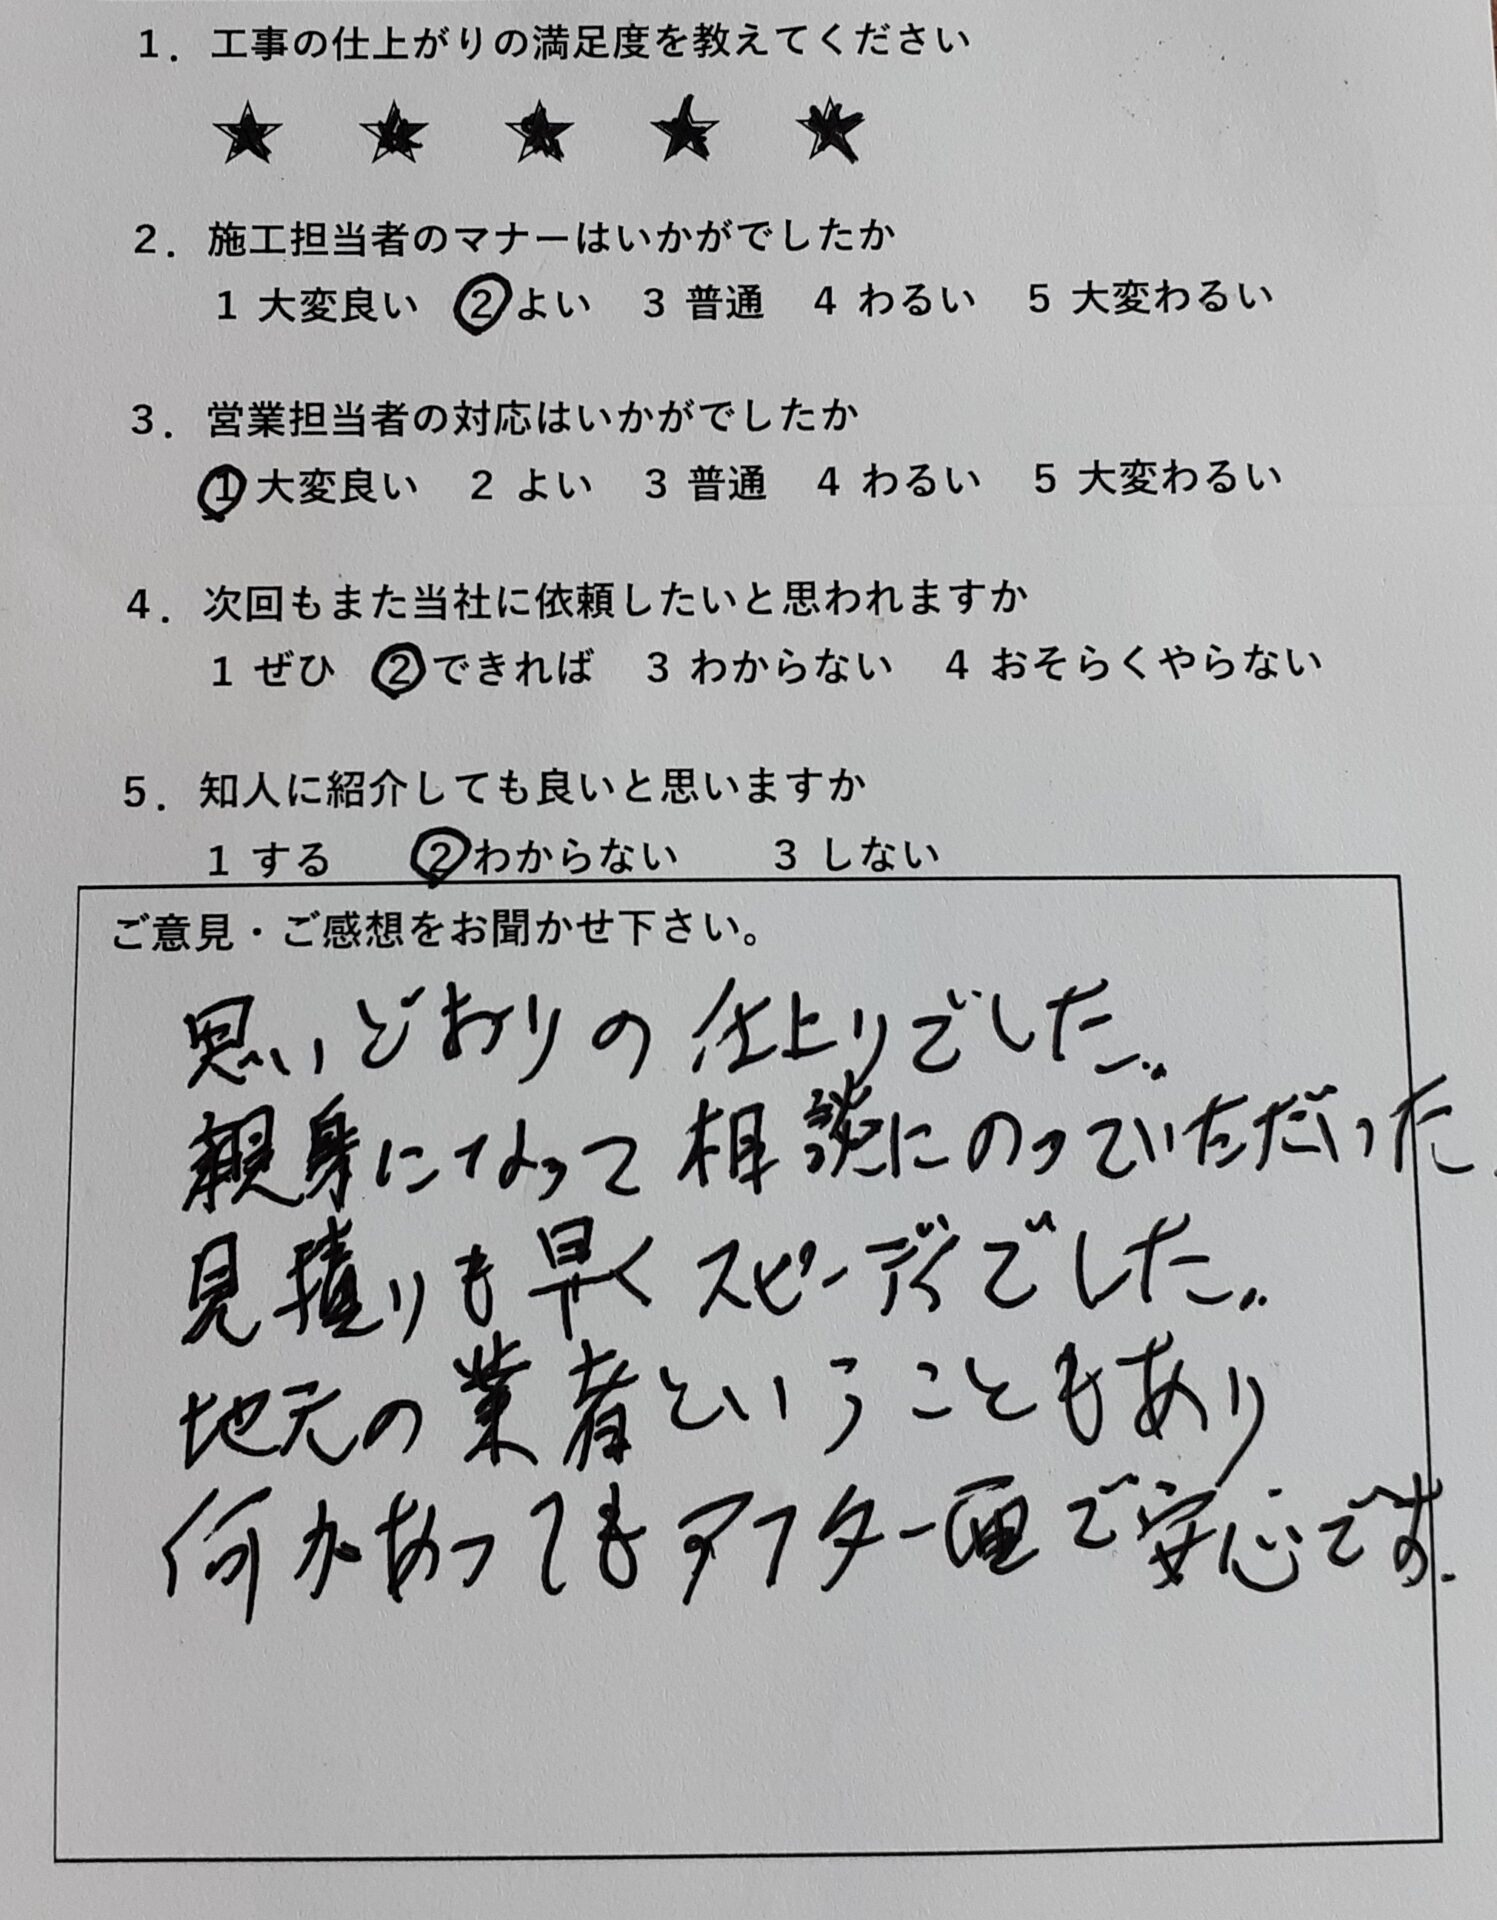 1. 工事の仕上がりの満足度を教えてください
★ ★ ★ ★ ★
2. 施工担当者のマナーはいかがでしたか
1 大変良い ②よい 3 普通 4 わるい 5 大変わるい
3. 営業担当者の対応はいかがでしたか
①大変良い 2 よい 3 普通 4 わるい 5 大変わるい
4. 次回もまた当社に依頼したいと思われますか
1 ぜひ ②できれば 3 わからない 4 おそらくやらない
5. 知人に紹介しても良いと思いますか
1 する ②わからない 3 しない
ご意見・ご感想をお聞かせ下さい。
思いどおりの仕上りでした。
親身になって相談にのっていただいった.
見積りも早くスピーディでした。
地元の業者ということもあり
何かあってもアフター面で安心です.